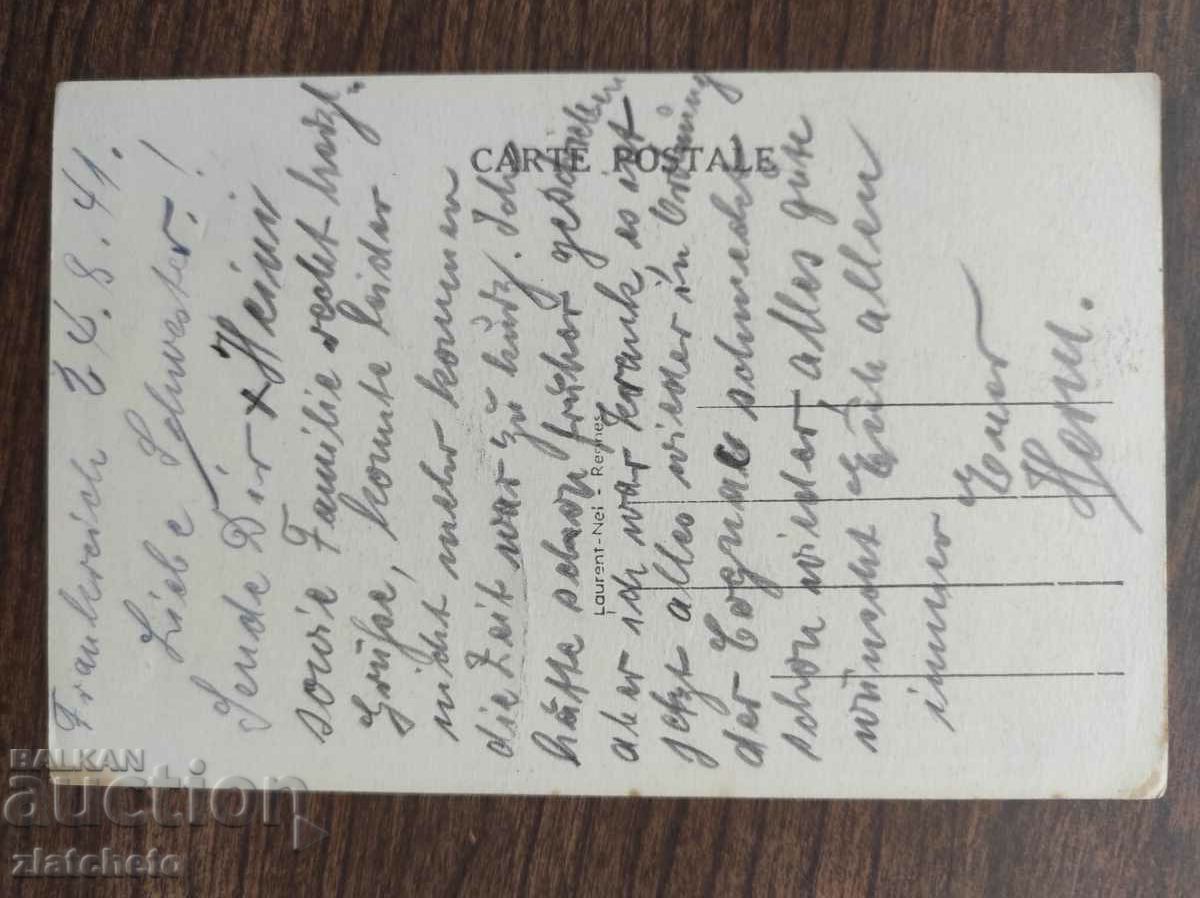 Frankreich 26.8.41.
Liebe Schwester!
Sende Dir + Heini
sowie Familie recht herzl.
Grüße, konnte leider
nicht mehr kommen
die Zeit war zu kurz. Ich
hätte schon früher geschrieben
aber ich war krank, es ist
jetzt alles wieder in Ordnung
der Cognac schmeckt
schon wieder, alles gute
wünscht Euch allen
immer
Euer
CARTE POSTALE
Laurent-Nel - Rennes
BALKAN
auction
zlatcheto